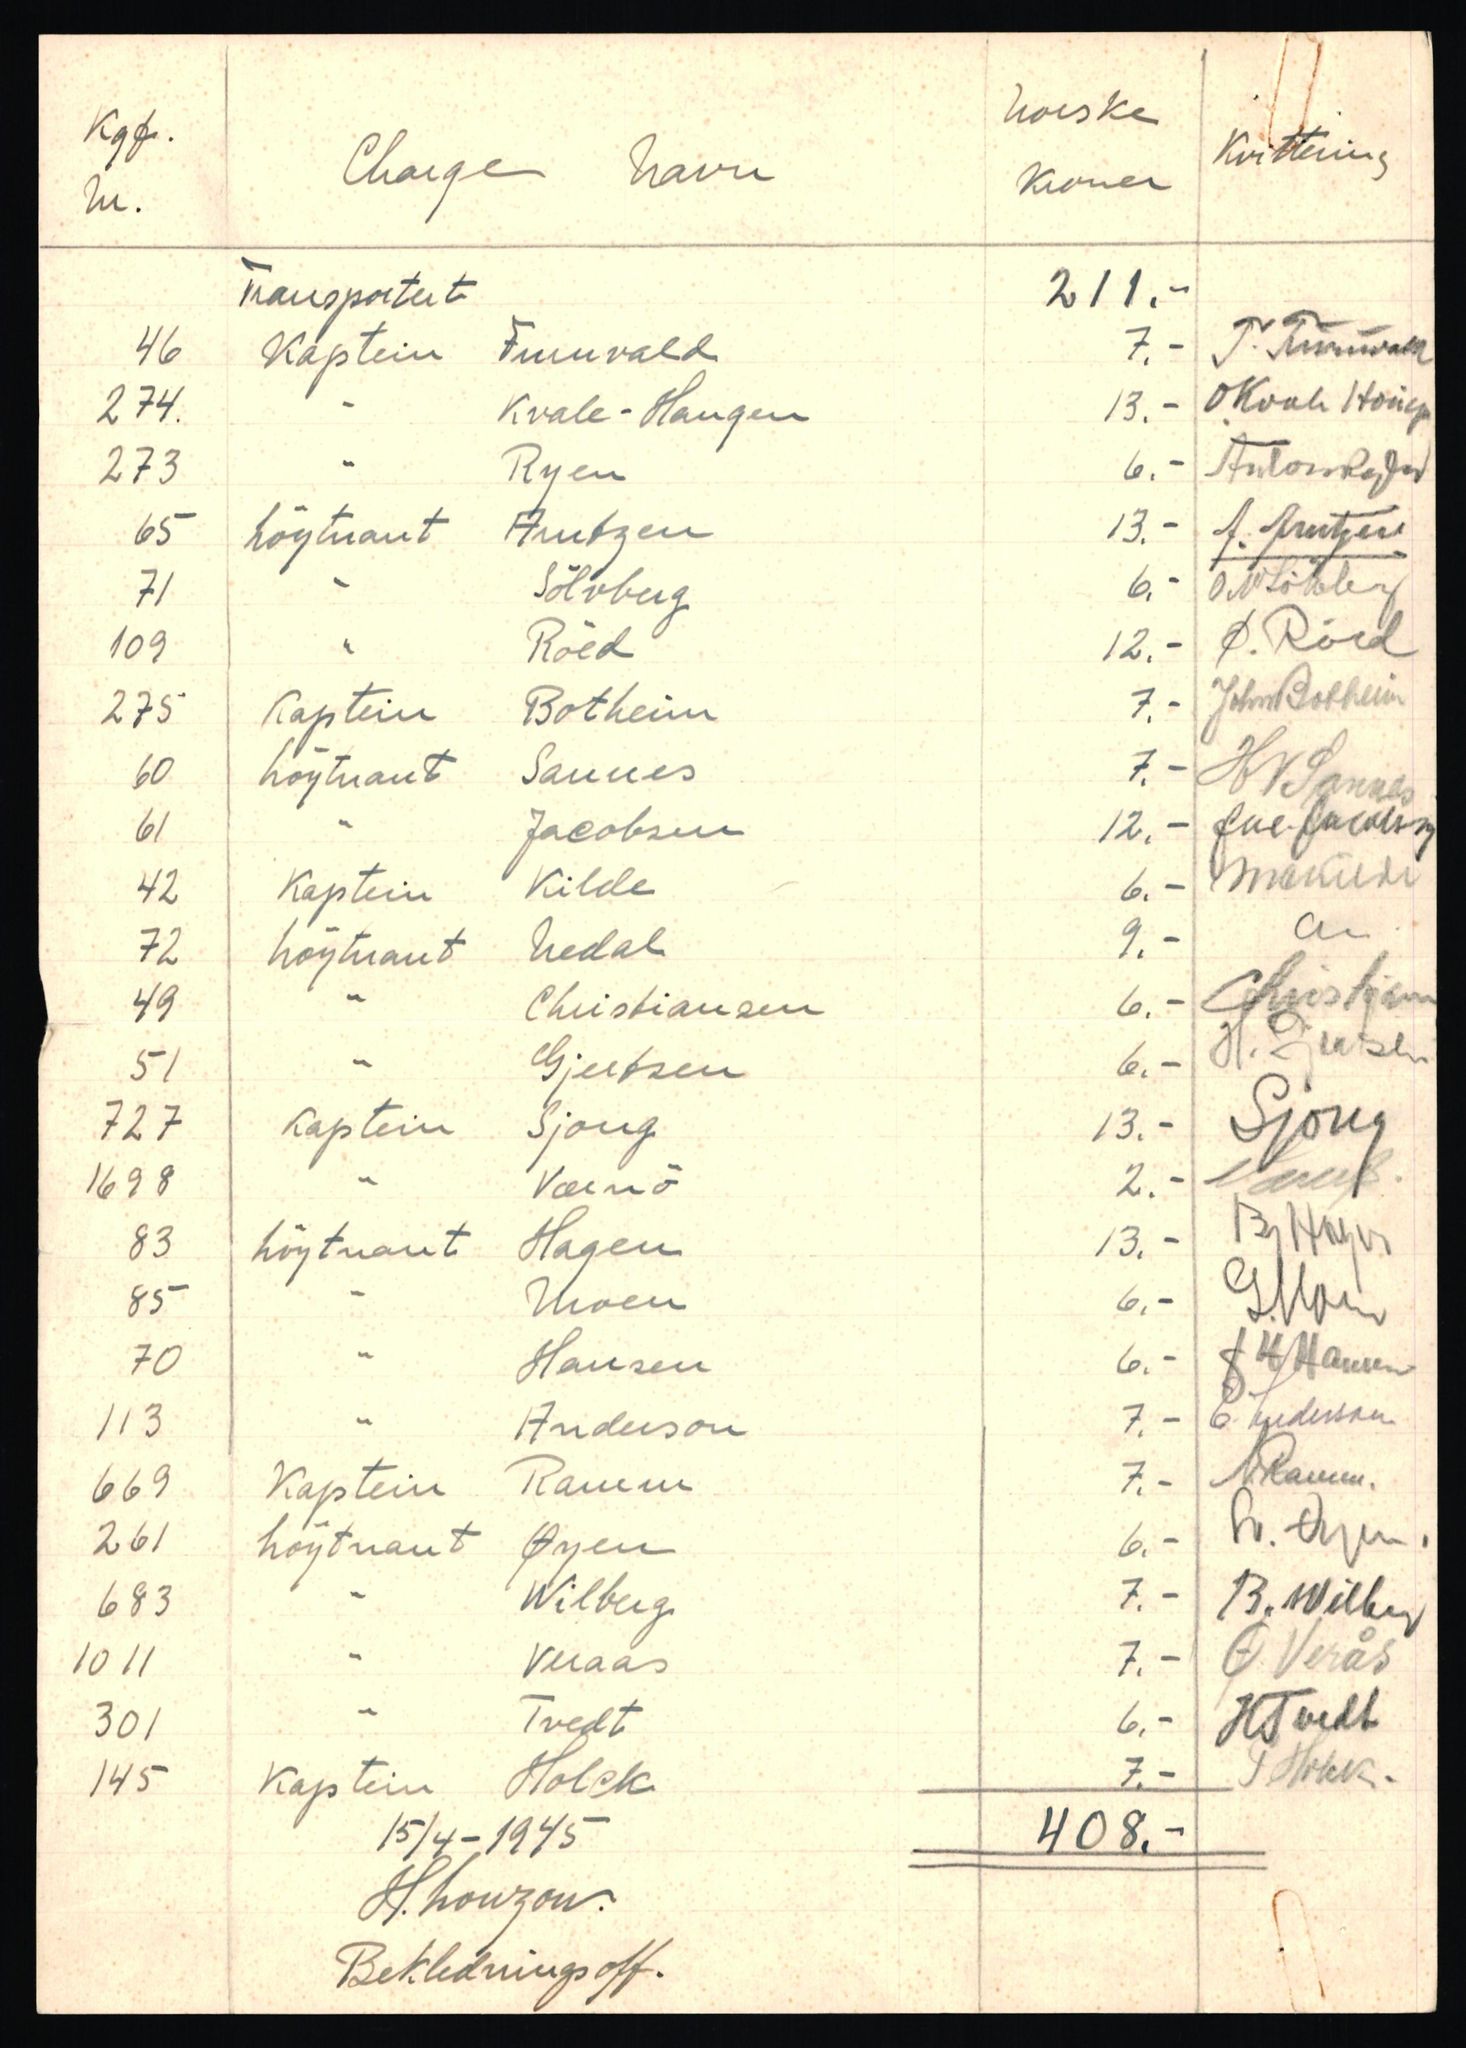 Kgf. Nr. Charge Navn Norske Kroner Kvittering
Transportert 211.-
46 Kaptein 7.-
274. " Kvale-Haugen 13.-
273 " Ryen 6.-
65 Löytnant Arntzen 13.- A. Arntzen
71 " Sölvberg 6.-
109 " Röed 12.- Ø. Röed
275 Kaptein Botheim 7.- John Botheim
60 Löytnant Sannes 7.- H V Sannes
61 " Jacobsen 12.-
42 Kaptein Kilde 6.-
72 Löytnant Nedal 9.-
49 " Christiansen 6.-
51 " Gjertsen 6.-
727 Kaptein Sjong 13.- Sjong
1698 " Værnö 2.-
83 Löytnant Hagen 13.-
85 " Moen 6.- G. Moen
70 " Hansen 6.-
113 " Anderson 7.- E. Anderson
669 Kaptein Ramm 7.- N Ramm.
261 Löytnant Øyen 6.-
683 " Wilberg 7.- B. Wilberg
1011 " Veraas 7.- O. Verås
301 " Tvedt 6.- H Tvedt
145 Kaptein Holck 7.-
15/4-1945 408.-
Bekledningsoff.